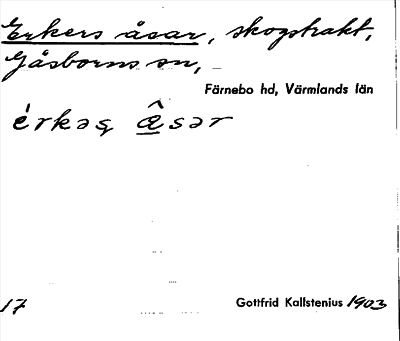 Erkers åsar, skogstrakt,
Gåsborns sn,
Färnebo hd, Värmlands län
érkəş âsər
17
Gottfrid Kallstenius 1903